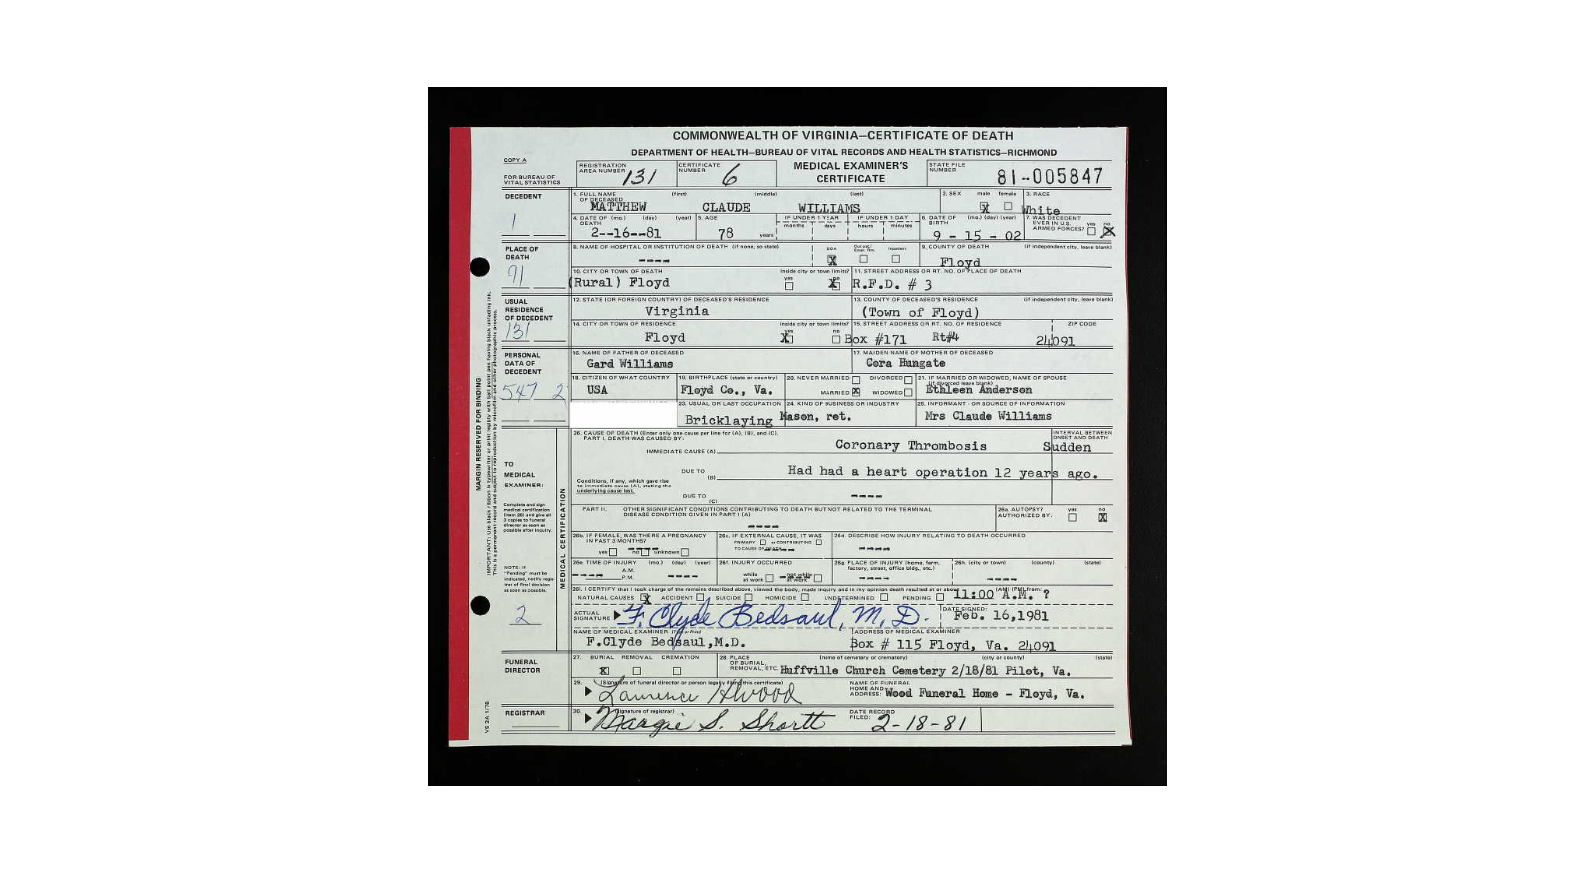 COMMONWEALTH OF VIRGINIA—CERTIFICATE OF DEATH
DEPARTMENT OF HEALTH—BUREAU OF VITAL RECORDS AND HEALTH STATISTICS—RICHMOND
COPY A
FOR BUREAU OF VITAL STATISTICS
REGISTRATION AREA NUMBER 131
CERTIFICATE NUMBER 6
MEDICAL EXAMINER'S CERTIFICATE
STATE FILE NUMBER 81-005847
DECEDENT
1
1. FULL NAME OF DECEASED (first) (middle) (last)
MATTHEW CLAUDE WILLIAMS
2. SEX male X female
3. RACE White
4. DATE OF DEATH (mo.) (day) (year) 2--16--81
5. AGE 78 years
IF UNDER 1 YEAR months days
IF UNDER 1 DAY hours minutes
6. DATE OF BIRTH (mo.) (day) (year) 9 - 15 - 02
7. WAS DECEDENT EVER IN U.S. ARMED FORCES? yes no X
PLACE OF DEATH
91
8. NAME OF HOSPITAL OR INSTITUTION OF DEATH (if none, so state) ----
DOA X Inpatient
9. COUNTY OF DEATH (if independent city, leave blank) Floyd
10. CITY OR TOWN OF DEATH (Rural) Floyd
inside city or town limits? yes no X
11. STREET ADDRESS OR RT. NO. OF PLACE OF DEATH R.F.D. # 3
USUAL RESIDENCE OF DECEDENT
131
12. STATE (OR FOREIGN COUNTRY) OF DECEASED'S RESIDENCE Virginia
13. COUNTY OF DECEASED'S RESIDENCE (if independent city, leave blank) (Town of Floyd)
14. CITY OR TOWN OF RESIDENCE Floyd
inside city or town limits? yes X no
15. STREET ADDRESS OR RT. NO. OF RESIDENCE ZIP CODE
Box #171 Rt#4 24091
PERSONAL DATA OF DECEDENT
547 2
16. NAME OF FATHER OF DECEASED Gard Williams
17. MAIDEN NAME OF MOTHER OF DECEASED Cora Hungate
18. CITIZEN OF WHAT COUNTRY USA
19. BIRTHPLACE (state or country) Floyd Co., Va.
20. NEVER MARRIED DIVORCED MARRIED X WIDOWED
21. IF MARRIED OR WIDOWED, NAME OF SPOUSE (if divorced leave blank) Ethleen Anderson
23. USUAL OR LAST OCCUPATION 24. KIND OF BUSINESS OR INDUSTRY
Bricklaying Mason, ret.
25. INFORMANT - OR SOURCE OF INFORMATION Mrs Claude Williams
TO MEDICAL EXAMINER:
Complete and sign medical certification (item 26) and give all 3 copies to funeral director as soon as possible after inquiry.
NOTE: If "Pending" must be indicated, notify registrar of final decision as soon as possible.
2
MEDICAL CERTIFICATION
26. CAUSE OF DEATH (Enter only one cause per line for (A), (B), and (C).
PART I. DEATH WAS CAUSED BY:
IMMEDIATE CAUSE (A) Coronary Thrombosis
INTERVAL BETWEEN ONSET AND DEATH Sudden
Conditions, if any, which gave rise to immediate cause (A), stating the underlying cause last.
DUE TO (B) Had had a heart operation 12 years ago.
DUE TO (C) ----
PART II. OTHER SIGNIFICANT CONDITIONS CONTRIBUTING TO DEATH BUT NOT RELATED TO THE TERMINAL DISEASE CONDITION GIVEN IN PART I (A)
----
26a. AUTOPSY? AUTHORIZED BY: yes no X
26b. IF FEMALE, WAS THERE A PREGNANCY IN PAST 3 MONTHS? yes no unknown
26c. IF EXTERNAL CAUSE, IT WAS PRIMARY or CONTRIBUTING TO CAUSE OF DEATH
26d. DESCRIBE HOW INJURY RELATING TO DEATH OCCURRED ----
26e. TIME OF INJURY (mo.) (day) (year) A.M. P.M. ---- ----
26f. INJURY OCCURRED while at work not while at work
26g. PLACE OF INJURY (home, farm, factory, street, office bldg., etc.) ----
26h. (city or town) (county) (state) ----
26i. I CERTIFY that I took charge of the remains described above, viewed the body, made inquiry and in my opinion death resulted at or about (AM) (PM) from: 11:00 A.M. ?
NATURAL CAUSES X ACCIDENT SUICIDE HOMICIDE UNDETERMINED PENDING
ACTUAL SIGNATURE F. Clyde Bedsaul, M.D.
DATE SIGNED: Feb. 16,1981
NAME OF MEDICAL EXAMINER F.Clyde Bedsaul,M.D.
ADDRESS OF MEDICAL EXAMINER Box # 115 Floyd, Va. 24091
FUNERAL DIRECTOR
27. BURIAL X REMOVAL CREMATION
28. PLACE OF BURIAL, REMOVAL, ETC. (name of cemetery or crematory) (city or county) (state)
Huffville Church Cemetery 2/18/81 Pilot, Va.
29. (Signature of funeral director or person legally filing this certificate) Lawrence Alwood
NAME OF FUNERAL HOME AND ADDRESS: Wood Funeral Home - Floyd, Va.
REGISTRAR
30. (Signature of registrar) Margie S. Shortt
DATE RECORD FILED: 2-18-81
MARGIN RESERVED FOR BINDING
VS 2A 1/78